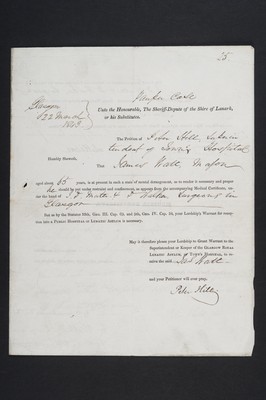 25
Pauper Case
Glasgow
22 March
1849
Unto the Honourable, The Sheriff-Depute of the Shire of Lanark,
or his Substitutes.
The Petition of Peter Hill, Superin
tendent of Town's Hospital
Humbly Sheweth,
That James Watt, Mason
aged about 65 years, is at present in such a state of mental derangement, as to render it necessary and proper
he should be put under custody and confinement, as appears from the accompanying Medical Certificate, un-
der the hand of
Surgeons in
Glasgow
But as by the Statutes 55th, Geo. III. Cap. 69, and 9th, Geo. IV. Cap. 34, your Lordship's Warrant for recep-
tion into a Public Hospital or Lunatic Asylum is necessary.
May it therefore please your Lordship to Grant Warrant to the
Superintendent or Keeper of the Glasgow Royal
Lunatic Asylum, or Town's Hospital, to re-
ceive the said Jas Watt
and your Petitioner will ever pray.
Peter Hill